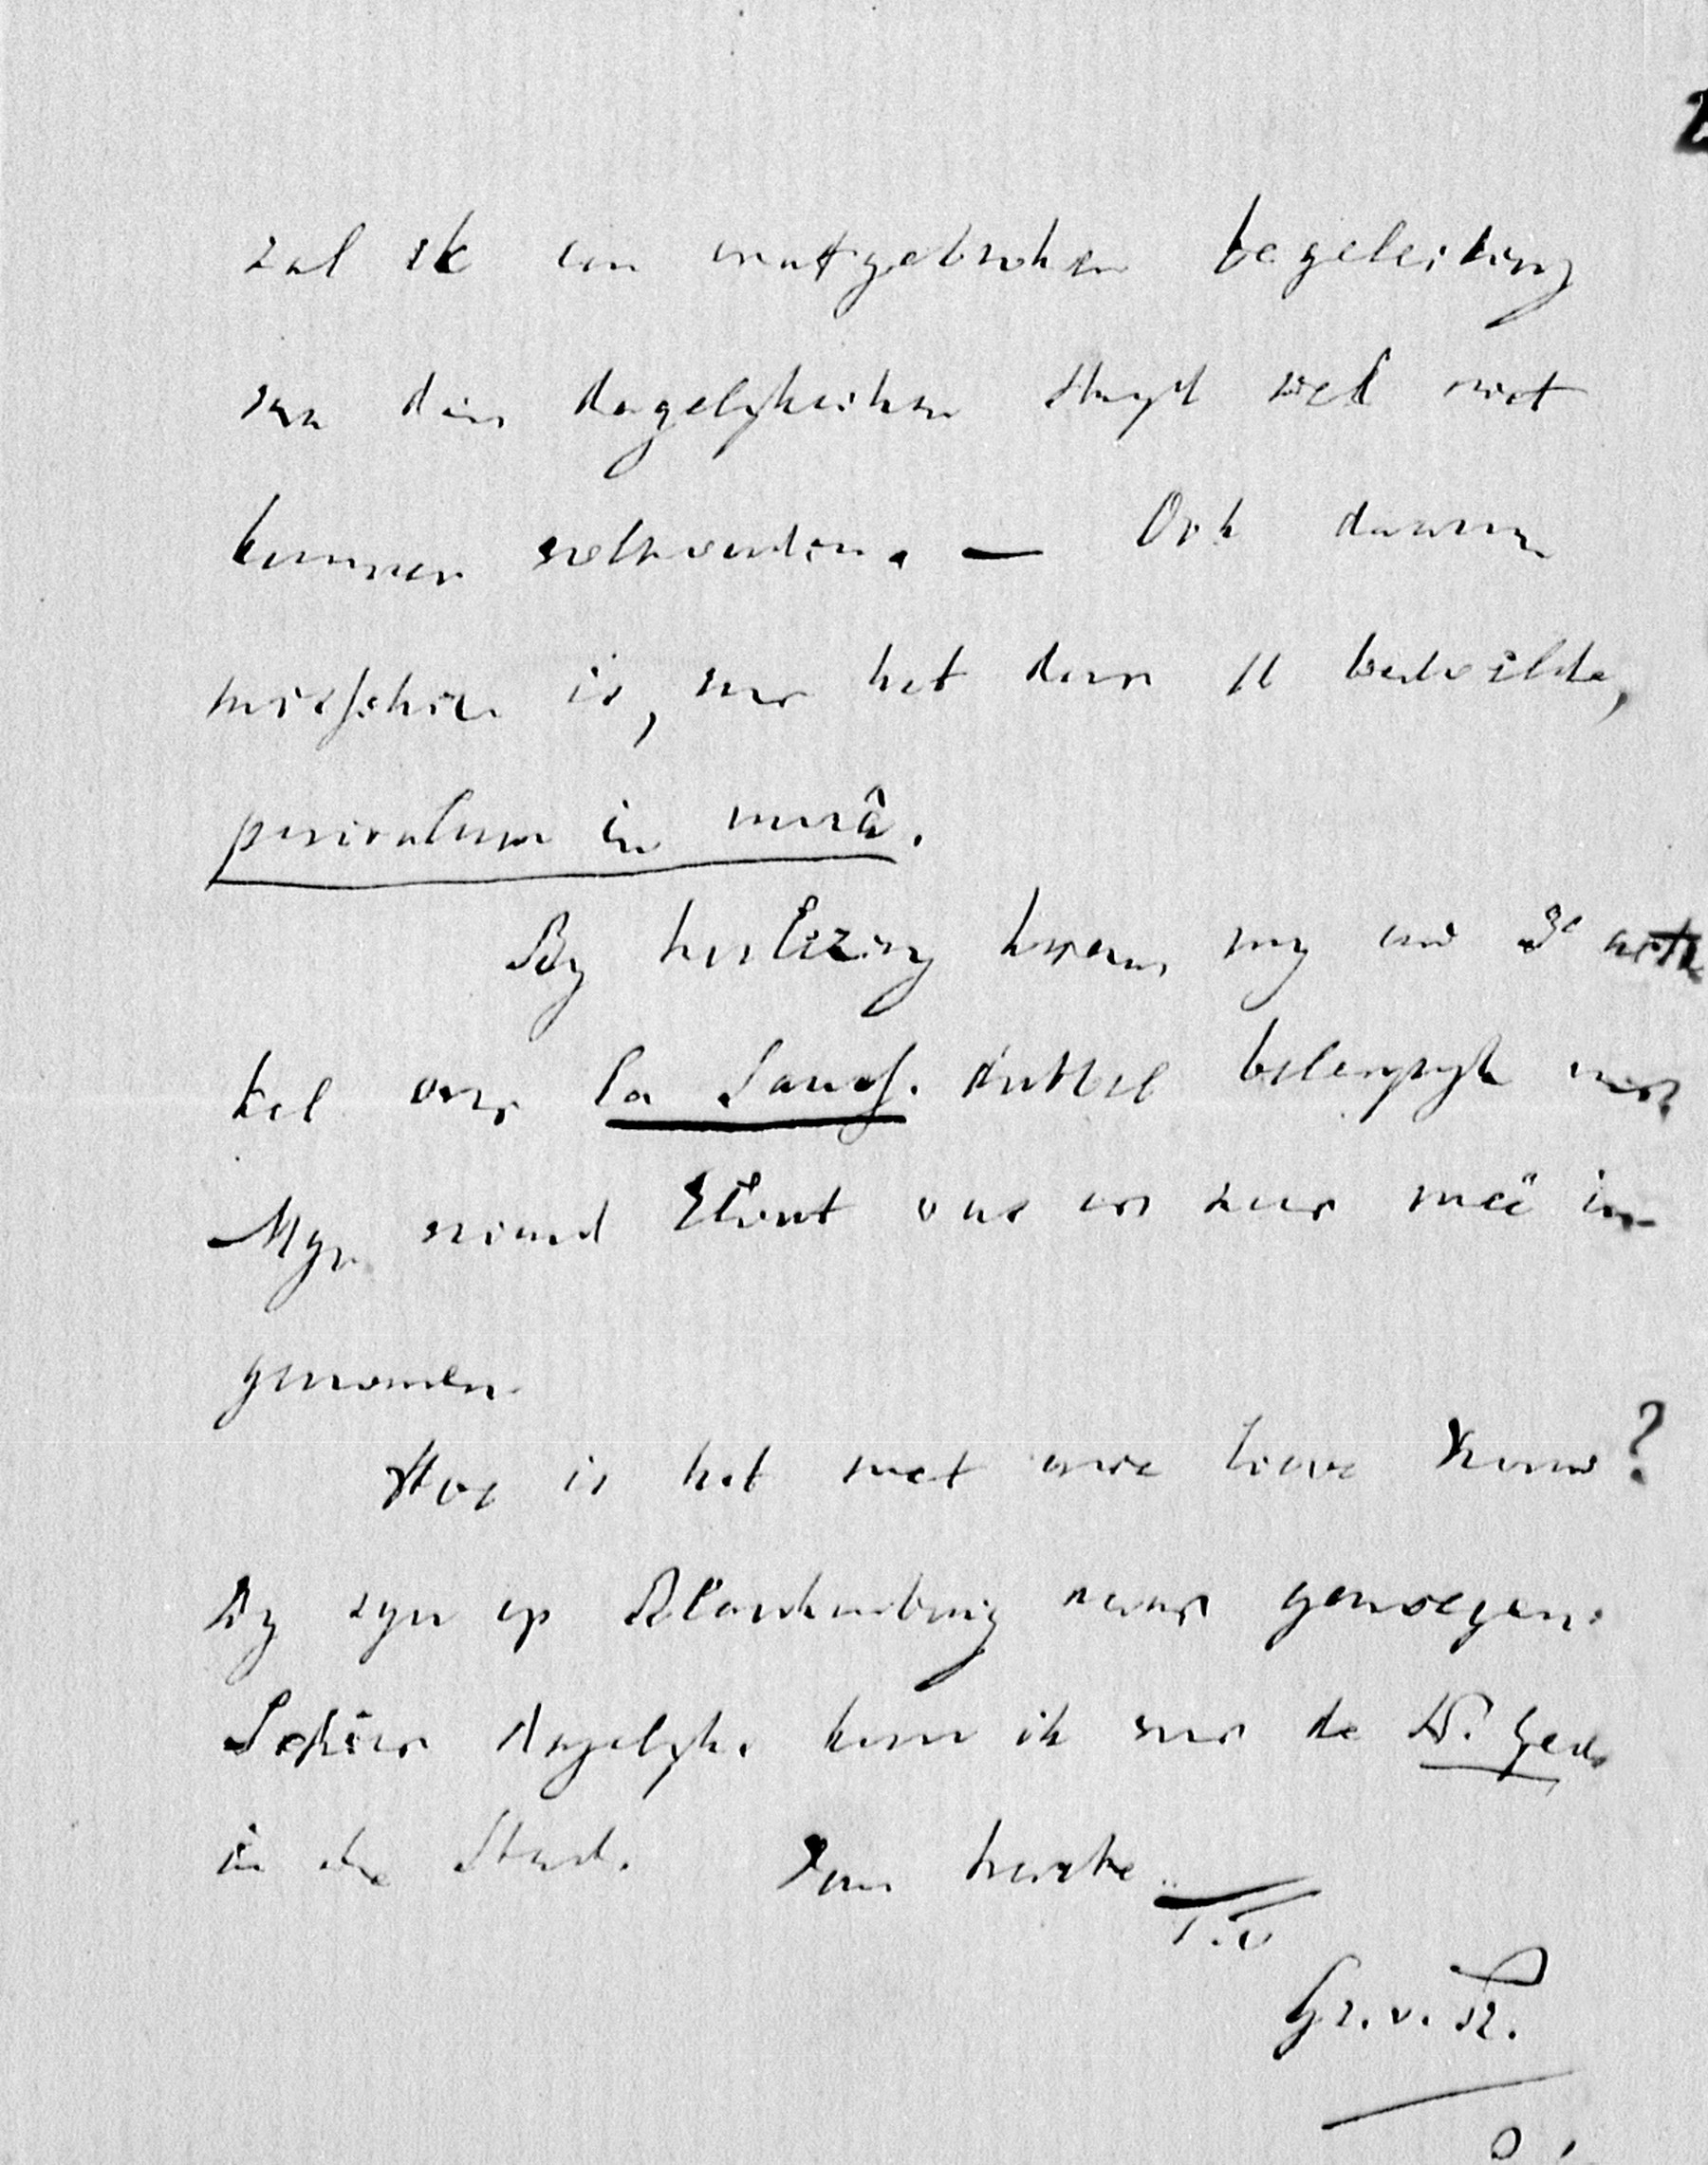 2
zal ik een onafgebroken begeleiding
van dien dagelijkschen strijd wel niet
kunnen volhouden. — Ook daarom
misschien is, voor het door U bedoelde,
periculum in morâ.
By herlezing kwam my uw 3e arti
kel over la Sauss. dubbel belangryk voor
Myn vriend Elout was er zeer meê in
genomen
Hoe is het met uwe lieve vrouw?
Wy zyn op Blankenburg naar genoegen.
Schier dagelyks kom ik voor de N. Ged.
in de Stad. Van harte
T.t.
Gr. v. Pr.